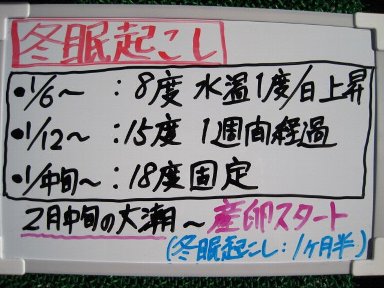 冬眠起こし
•1/6~:8度 水温1度/日上昇
•1/12~:15度 1週間経過
•1/中旬~:18度固定
2月中旬の大潮~産卵スタート
(冬眠起こし:1ヶ月半)